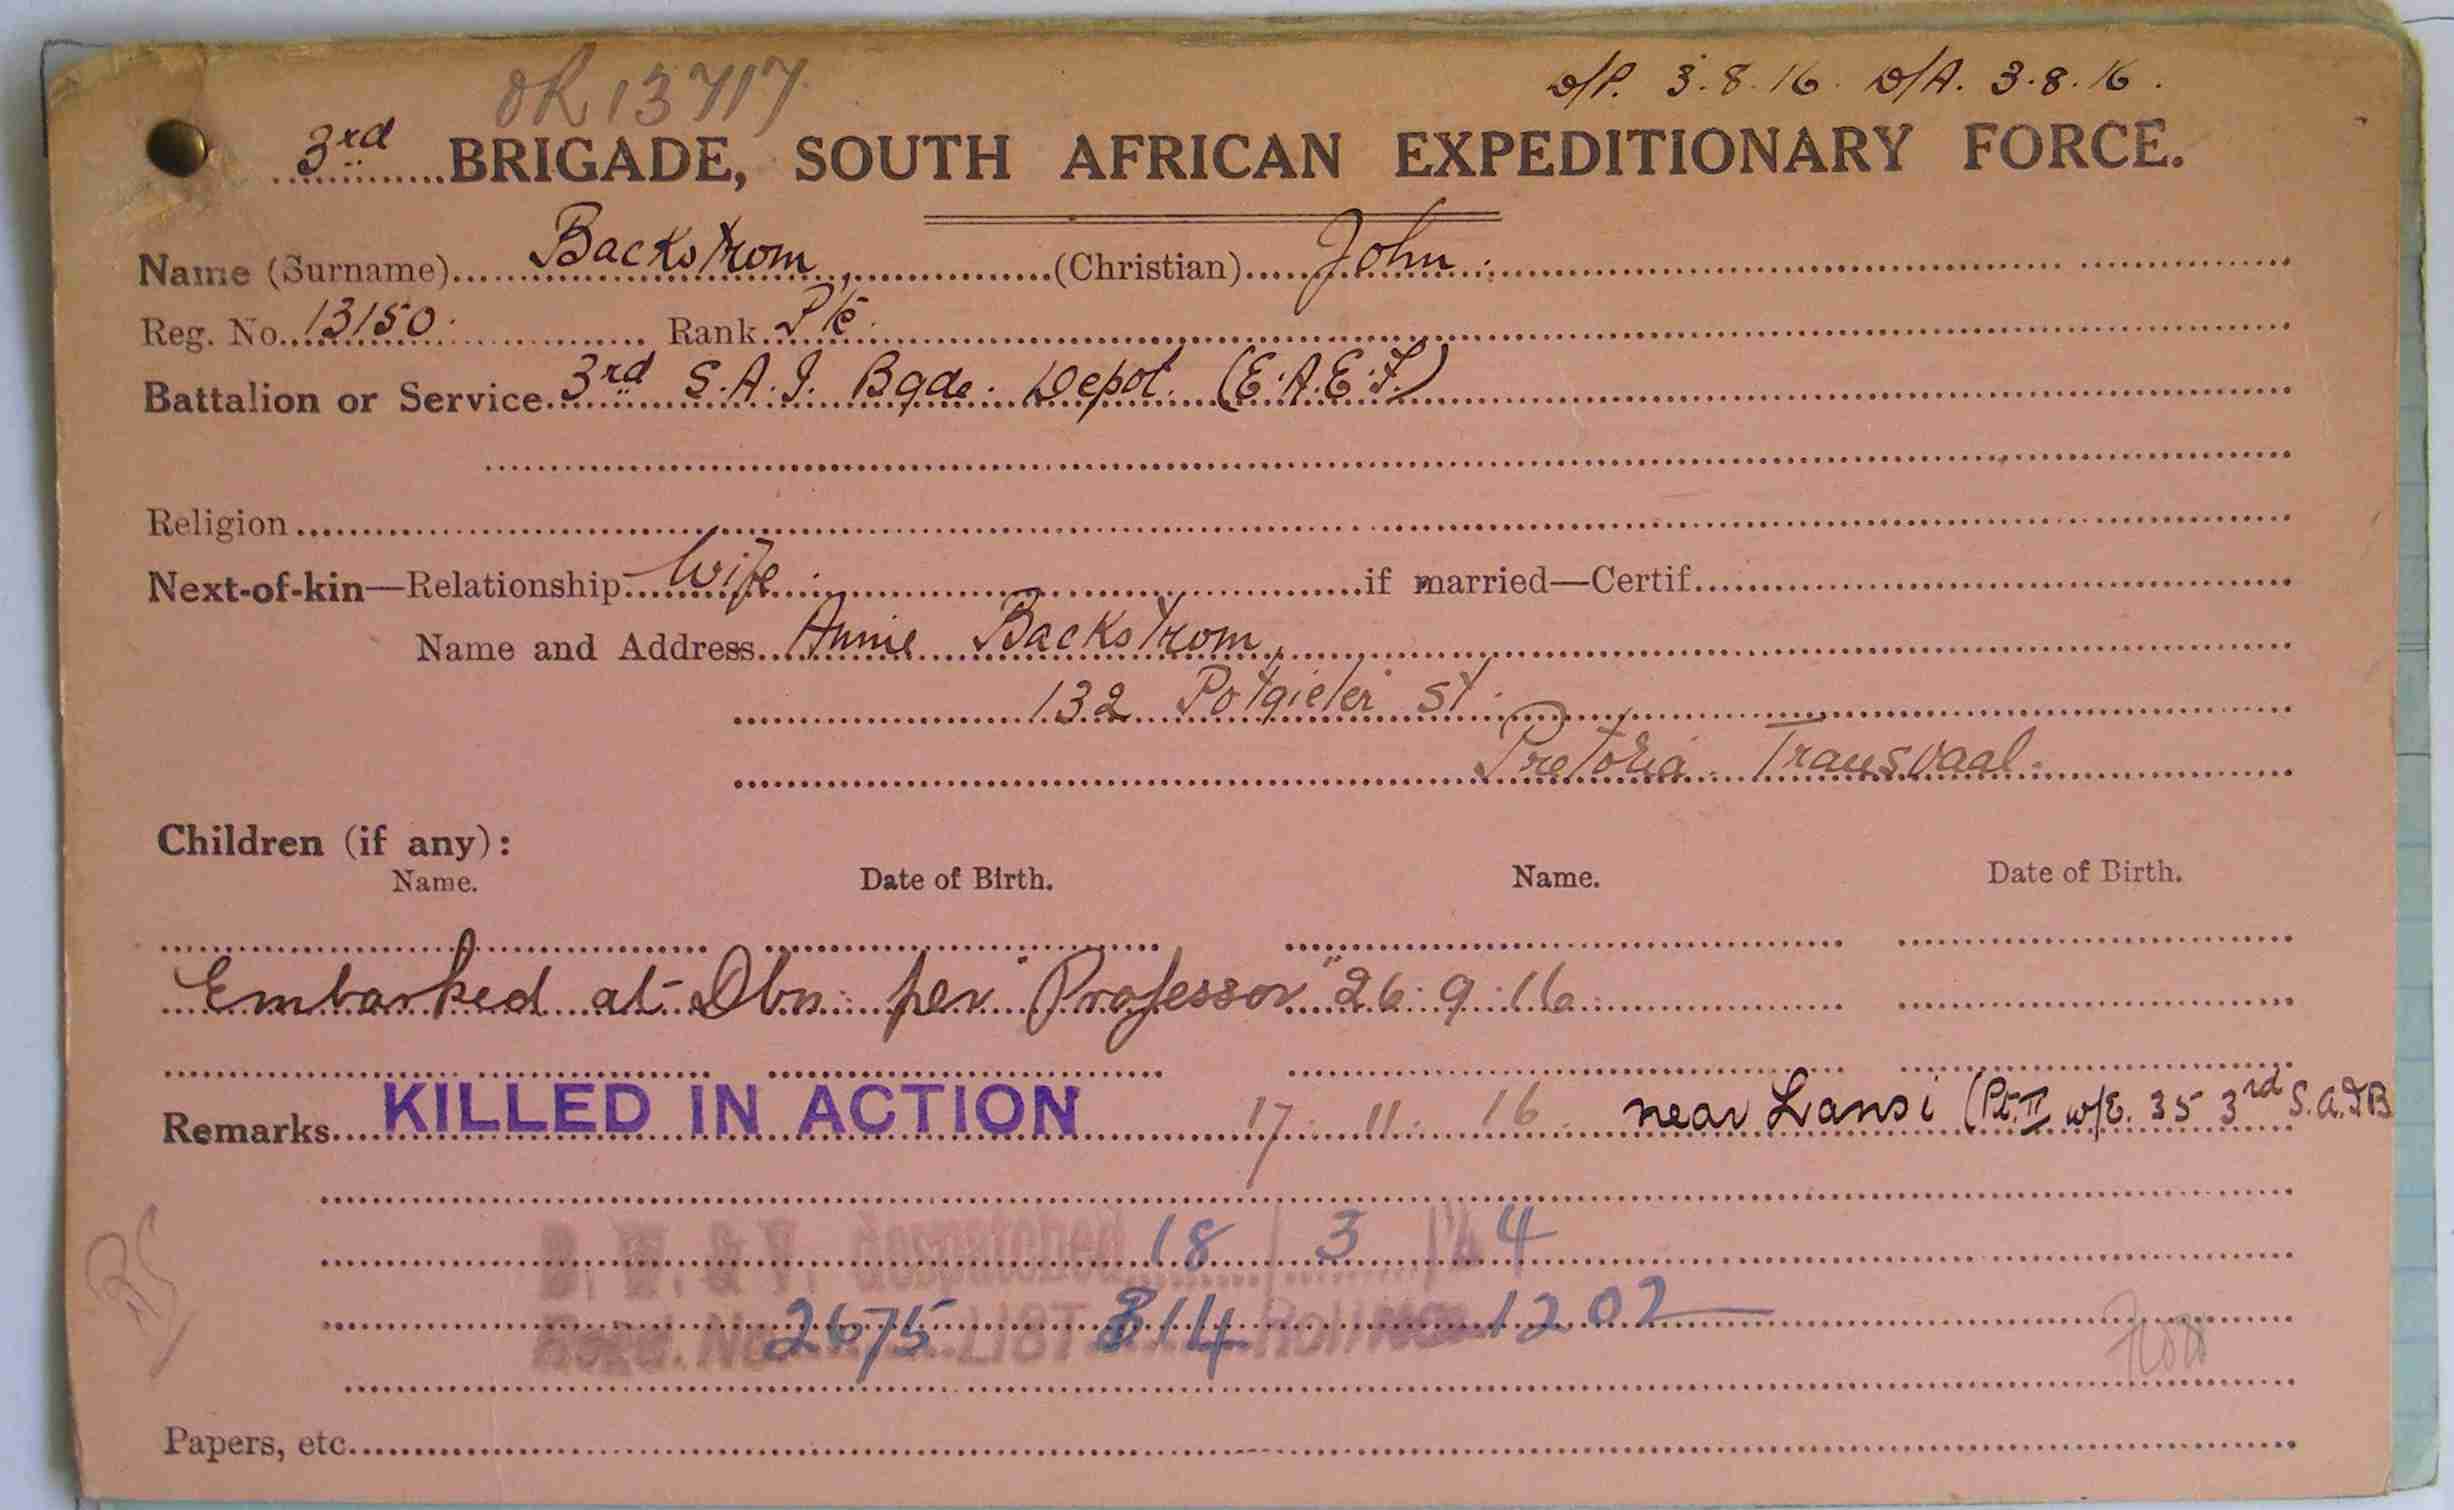 OR 13717
D/P. 3.8.16. D/A. 3.8.16.
3rd BRIGADE, SOUTH AFRICAN EXPEDITIONARY FORCE.
Name (Surname) Backstrom, (Christian) John.
Reg. No. 13150. Rank Pte.
Battalion or Service 3rd S.A.I. Bgde. Depot. (E.A.E.F.)
Religion
Next-of-kin—Relationship Wife. if married—Certif.
Name and Address Annie Backstrom,
132 Potgieter St.
Pretoria Transvaal.
Children (if any):
Name. Date of Birth. Name. Date of Birth.
Embarked at Dbn. per "Professor" 26.9.16
Remarks KILLED IN ACTION 17.11.16 near Lansi (Pt. II w/E. 35 3rd S.A.I.B
B. W. & V. despatched 18 3 4
No 2675 LIST 814 Roll No 1202
Papers, etc.